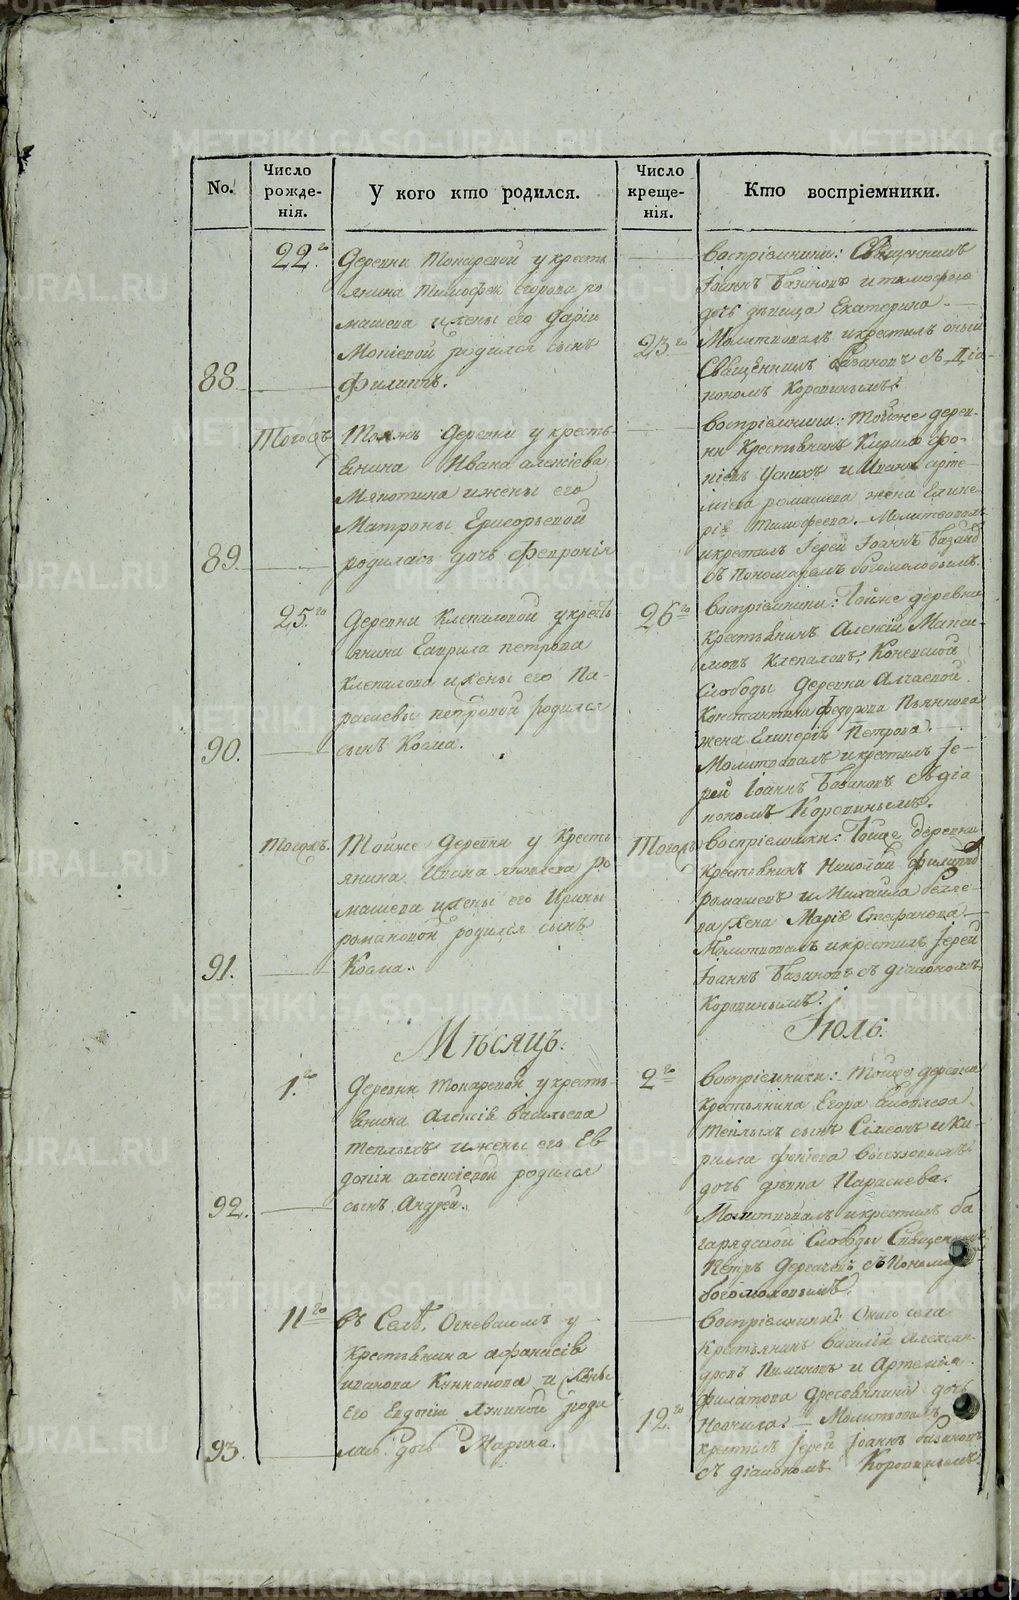 No.
Число рожде- нія.
У кого кто родился.
Число креще- нія.
Кто воспріемники.
22го
Деревни Токаревой у кресть
янина Тимофея Егорова ро
машева и жены его Даріи
родился сынъ
88
Филиппъ.
воспріемники: Священникъ
Іоаннъ Базановъ и
дочь девица Екатерина.
23го
Молитвовалъ и крестилъ оный
Священникъ Базановъ съ Діа
кономъ Коровинымъ.
Тогожъ
Тояжъ Деревни у кресть
янина Ивана алексіева
Мякотина и жены его
Матроны Григорьевой
89.
родилась дочь Февронія
воспріемники: Тойже дерев-
ни Крестьянинъ Кирило
и Ивана арте-
міева ромашева жена
Тимофеева. Молитвовалъ
и крестилъ Іерей Іоаннъ Базановъ
съ Пономаремъ богомоловымъ.
25го
Деревни Клепаловой у кресть
янина Гаврила петрова
Клепалова и жены его Па-
раскевы петровой родился
90.
сынъ Косма.
26го
воспріемники: Тойже деревни
крестьянинъ Алексій Макси
мовъ Клепаловъ, Коневской
Слободы Деревни
Константина Федорова Пьянкова
жена Петрова.
Молитвовалъ и крестилъ Іе-
рей Іоаннъ Базановъ съ діа
кономъ Коровинымъ.
Тогожъ.
Тойже деревни у Кресть
янина Ивана яковлева Ро
машева и жены его Ирины
романовой родился сынъ
91.
Косма.
Тогожъ
воспріемники: Тойже деревни
крестьянинъ Николай филиппо
ромашевъ и Михаила
жена Марія Стефанова.
Молитвовалъ и крестилъ Іерей
Іоаннъ Базановъ съ діакономъ
Коровинымъ.
Мѣсяцъ.
Іюль.
1го
Деревни Токаревой у кресть-
янина Алексія васильева
Теплыхъ и жены его Ев
докіи алексіевой родился
92.
сынъ Андрей.
2го
воспріемники: Тойже деревни
крестьянина Егора
Теплыхъ сынъ Сімеонъ и Ки-
рилла
дочь девка Параскева.
Молитвовалъ и крестилъ ба
гарядской Слободы Священникъ
Петръ съ Пономар
богомоловымъ.
11го
въ Селѣ Огневскомъ у
Крестьянина афанасія
иванова и жены
Его Евдокіи роди
93.
лась дочь Марина.
воспріемники: Онаго села
Крестьянинъ василій Алексан
дровъ и Артемія
филатова дочь
12го
Неонила. Молитвовалъ
крестилъ Іерей Іоаннъ базановъ
съ діакономъ Коровинымъ.
METRIKI.GASO-URAL.RU